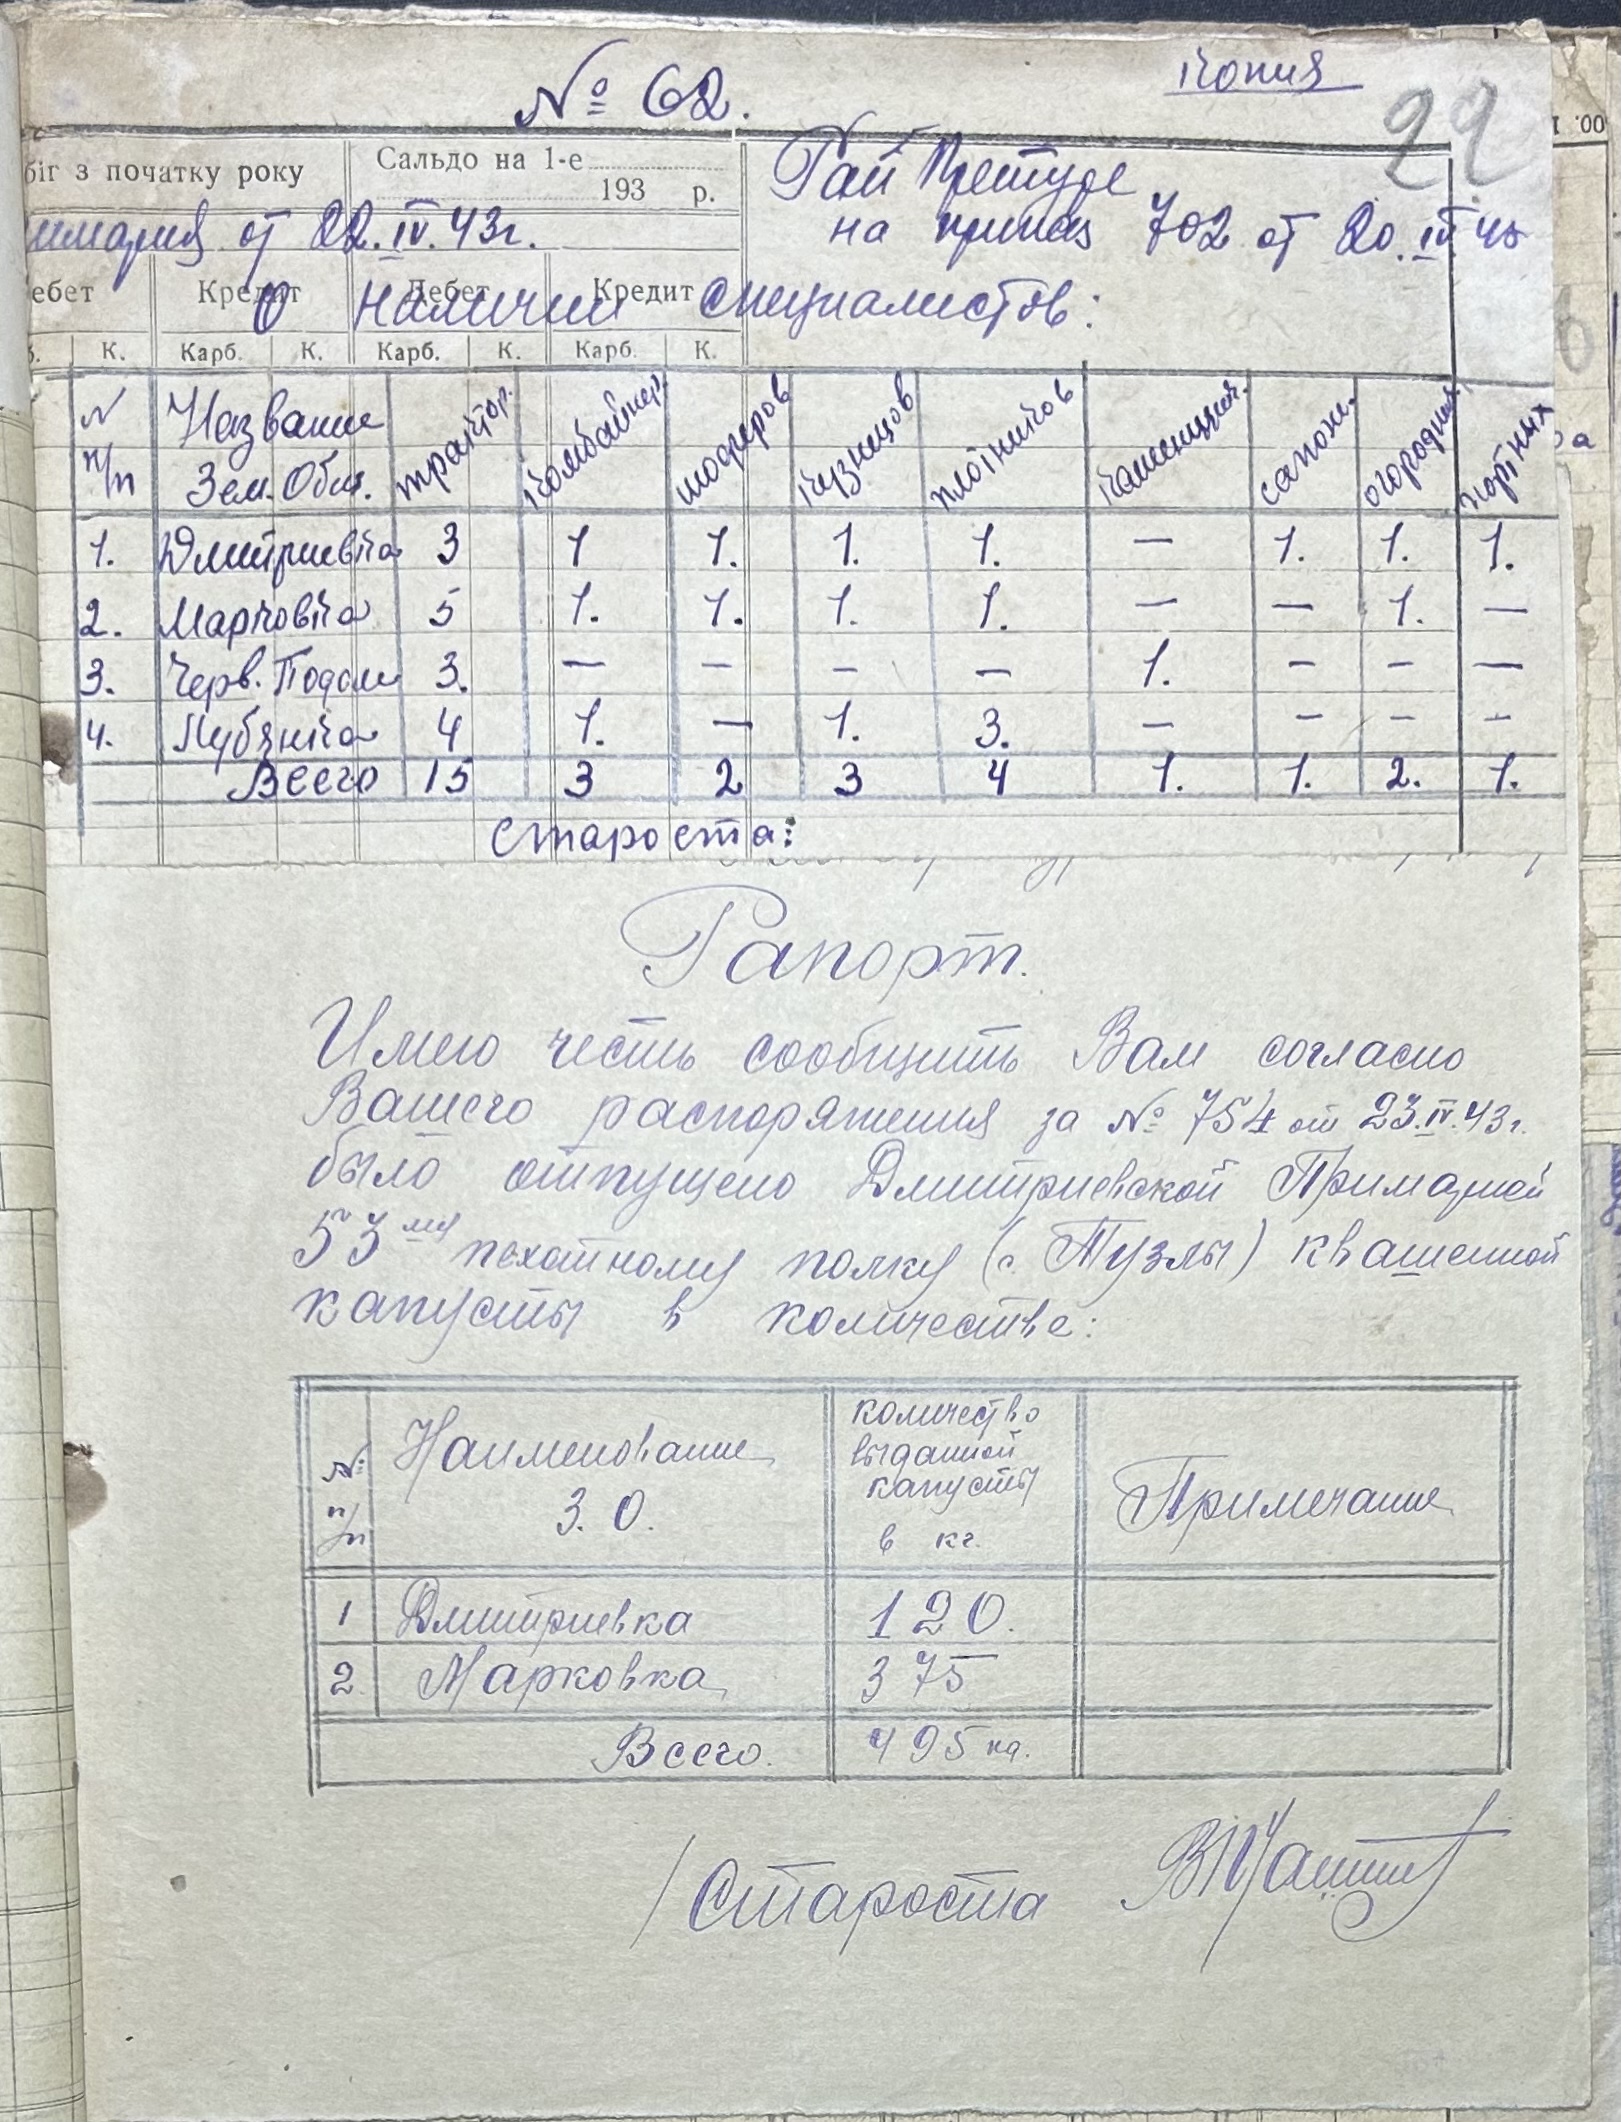 Копия
№ 62.
22
біг з початку року Сальдо на 1-е
193 р.
Рай Претуре
имария от 22.IV.43г. на приказ 702 от 20.IV 43
ебет Кредит Дебет Кредит
О наличии специалистов:
К. Карб. К. Карб. К. Карб. К.
N п/п Название Зем. Общ. трактор. комбайнер. шоферов кузнецов плотников каменщик. сапожн. огородник. портных
1. Дмитриевка 3 1 1. 1. 1. — 1. 1. 1.
2. Марковка 5 1. 1. 1. 1. — — 1. —
3. Черв. Подол 3. — — — — 1. — — —
4. Лубянка 4 1. — 1. 3. — — — —
Всего 15 3 2 3 4 1. 1. 2. 1.
Староста:
Рапорт.
Имею честь сообщить Вам согласно
Вашего распоряжения за № 754 от 23.IV.43г.
было отпущено Дмитриевской Примарией
53му пехотному полку (с. Тузлы) квашенной
капусты в количестве:
№ п/п Наименование З. О. количество выданной капусты в кг. Примечание
1 Дмитриевка 120.
2 Марковка 375
Всего. 495 кг.
Староста